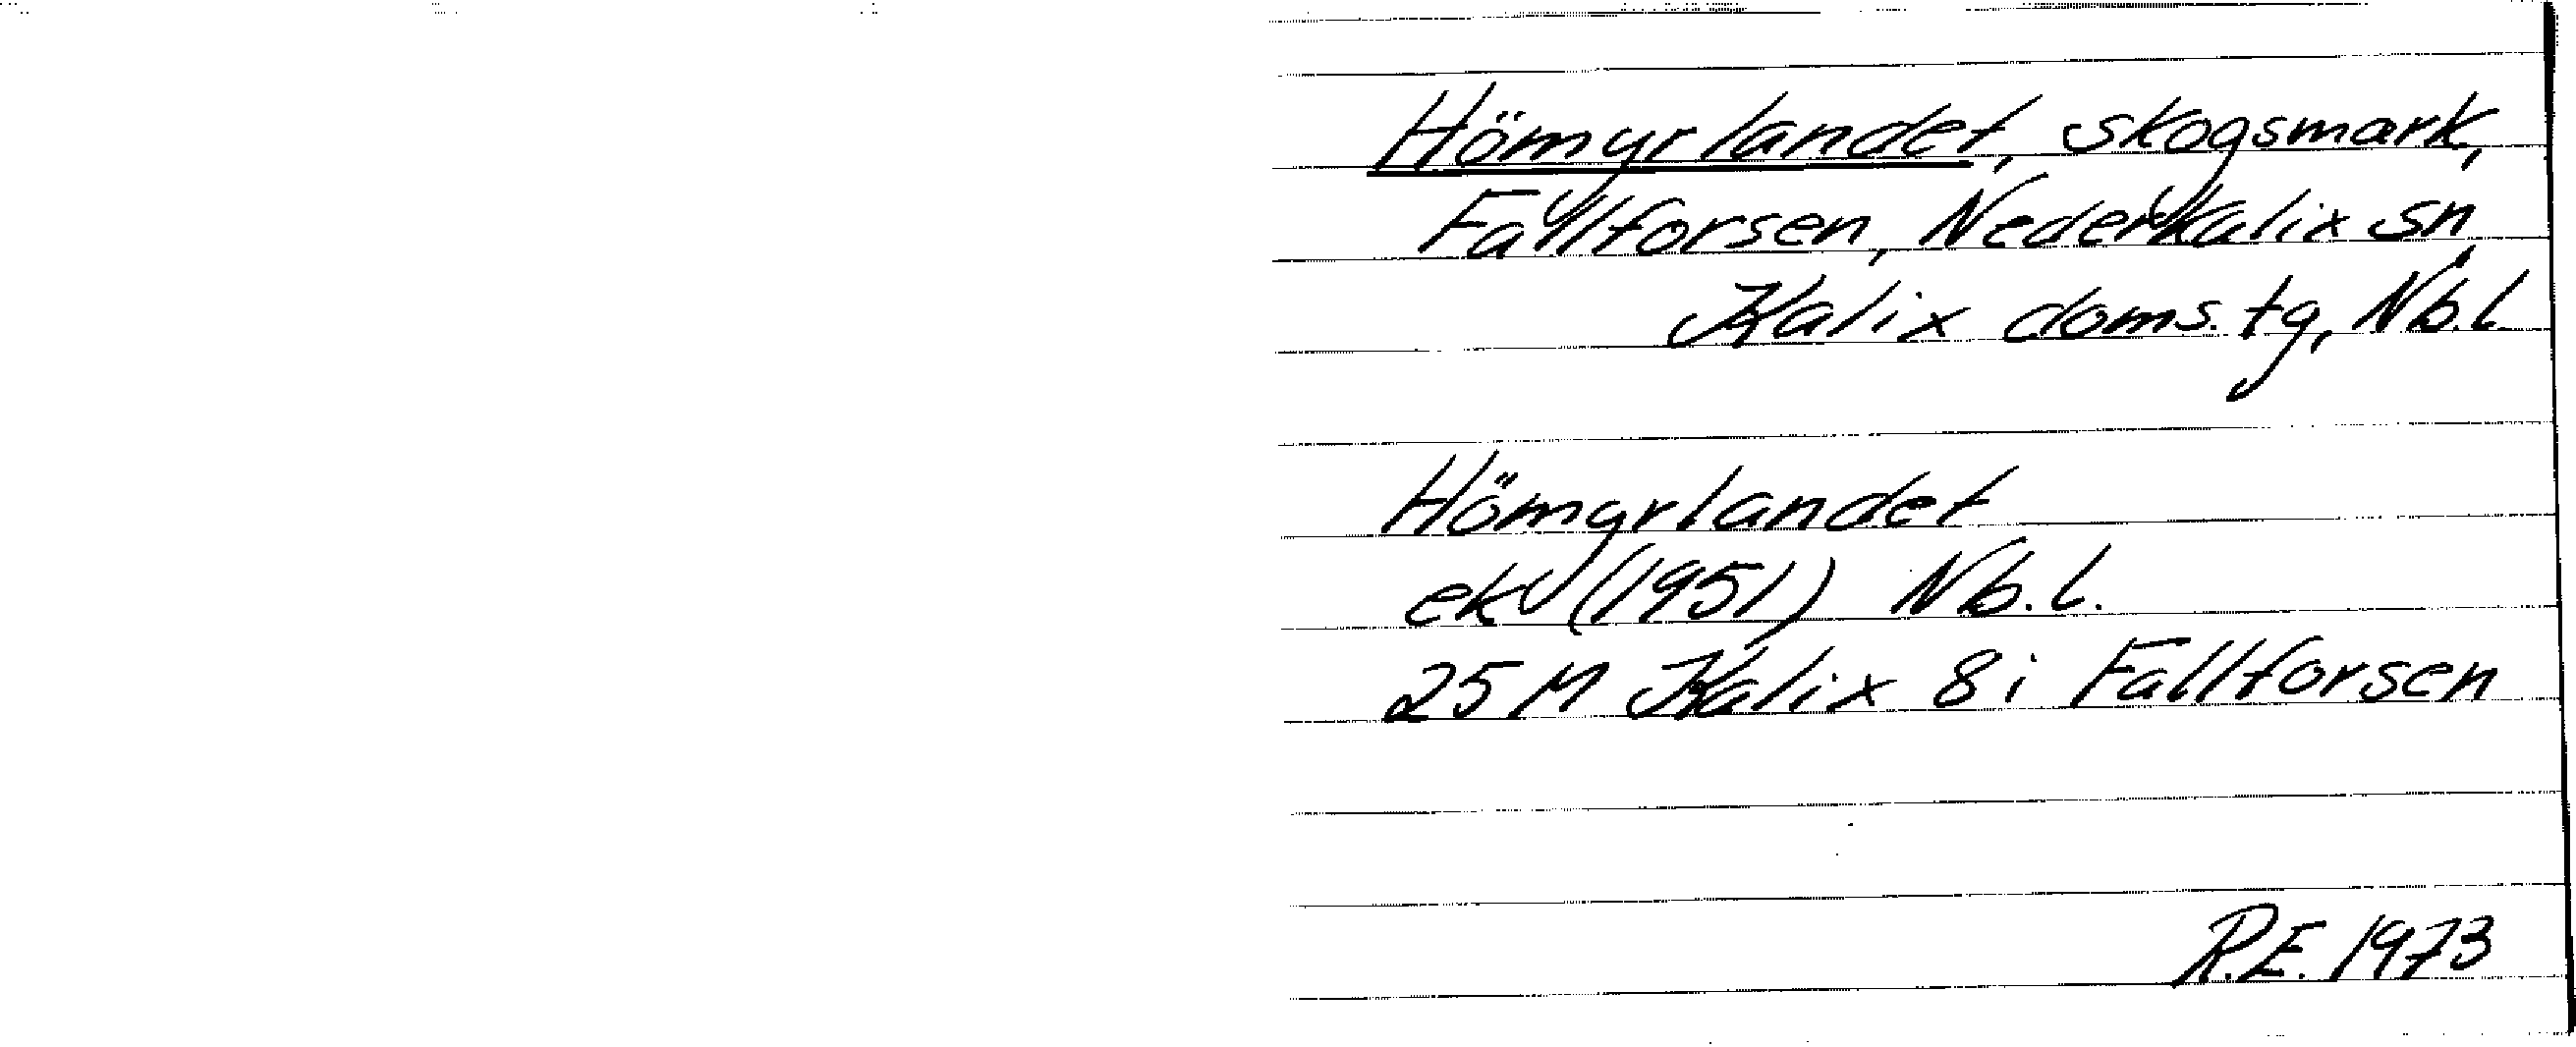 Hömyrlandet, skogsmark,
Fallforsen, Nederkalix sn,
Kalix doms. tg, Nb.l.
Hömyrlandet
ek (1951) Nb.l.
25 M Kalix 8i Fallforsen
R.E. 1973